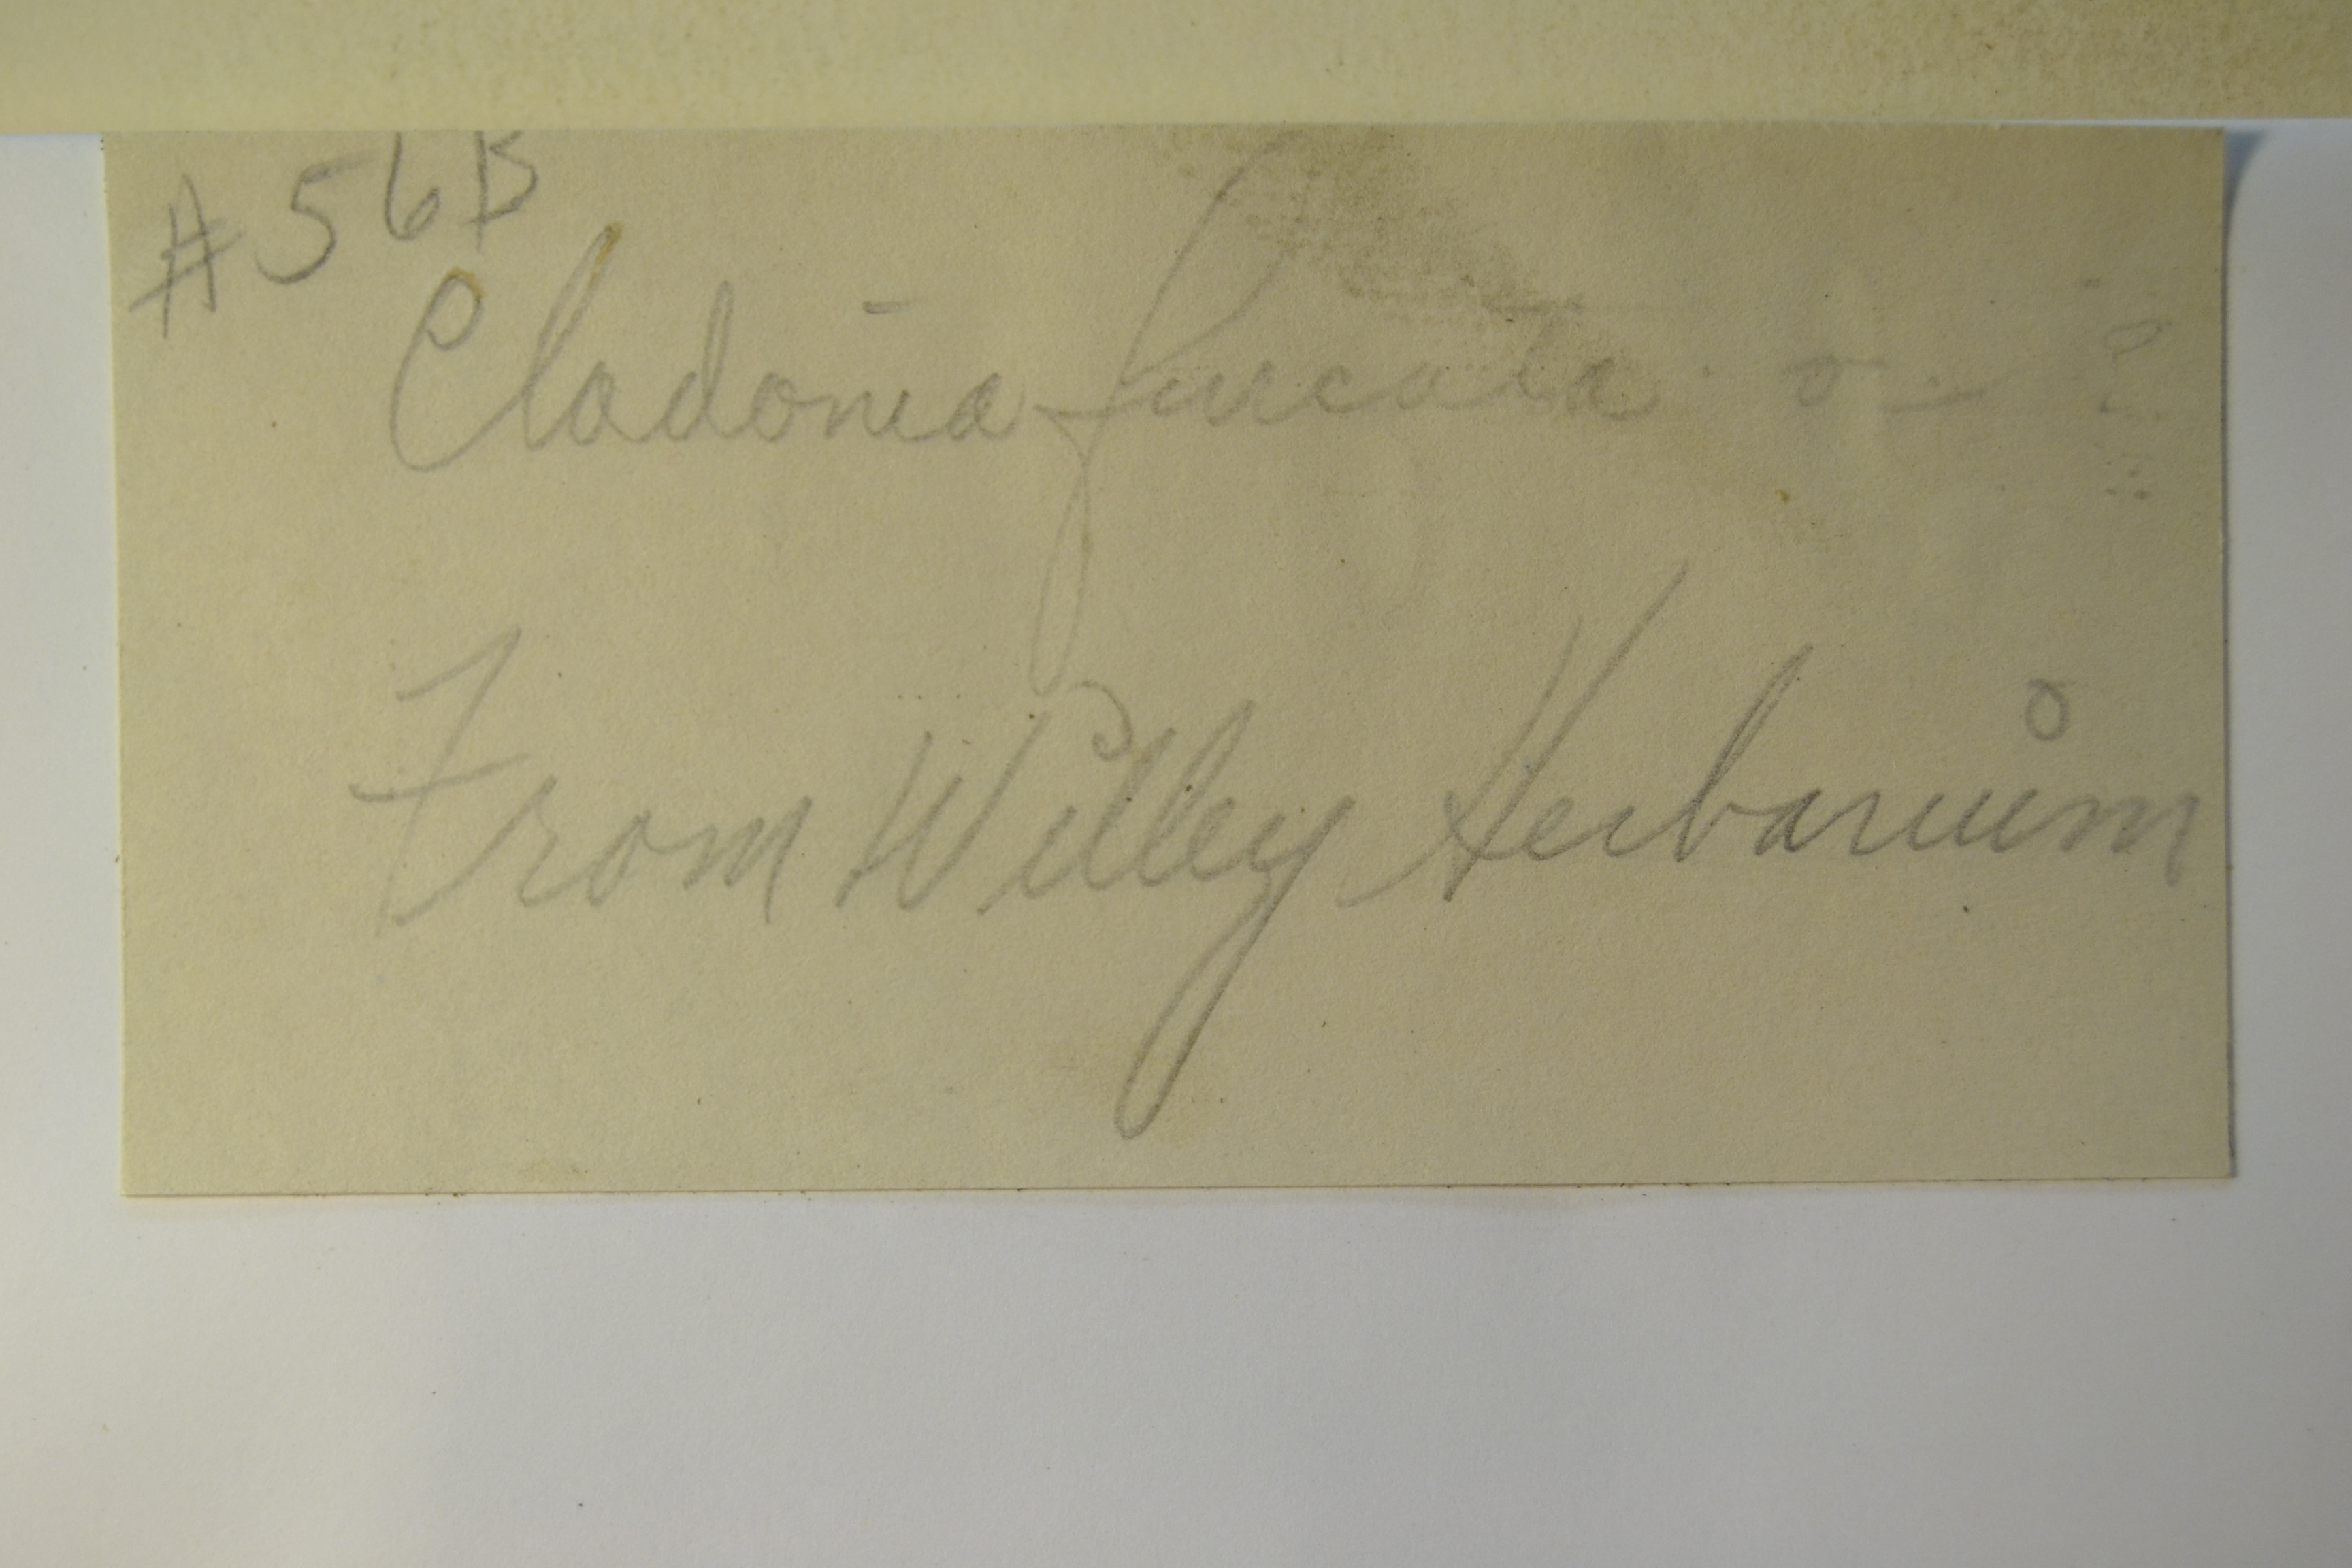 #56B
Cladonia furcata. or ?
From Willey Herbarium